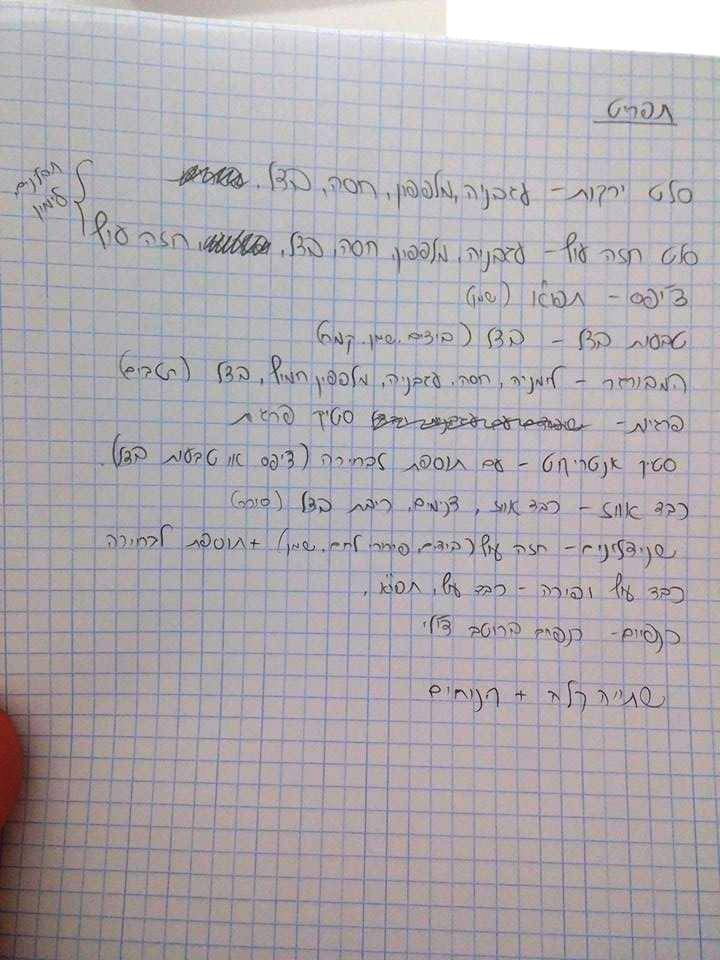 תפריט
סלט ירקות - עגבניה, מלפפון, חסה, בצל,
סלט חזה עוף - עגבניה, מלפפון, חסה, בצל, חזה עוף
תבלינים
לימון
צ'יפס - תפו"א (שמן)
טבעות בצל - בצל (ביצים, שמן, קמח)
המבורגר - לחמניה, חסה, עגבניה, מלפפון חמוץ, בצל (רטבים)
פרגית - סטיק פרגית
סטיק אנטריקוט - עם תוספת לבחירה (צ'יפס או טבעות בצל).
כבד אווז - כבד אווז, צנימים, ריבת בצל
שניצלונים - חזה עוף (ביצים, פירורי לחם, שמן) + תוספת לבחירה
כבד עוף ופירה - כבד עוף, תפו"א,
כנפיים - כנפיים ברוטב צ'ילי
שתייה קלה + קינוחים